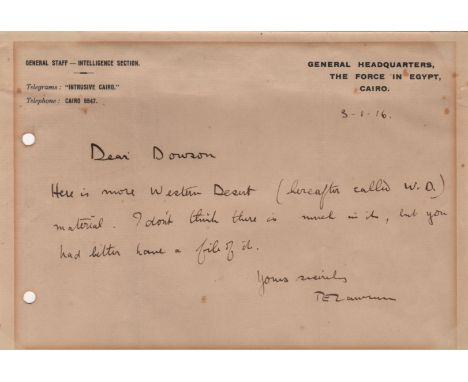 GENERAL STAFF — INTELLIGENCE SECTION.
Telegrams: "INTRUSIVE CAIRO."
Telephone: CAIRO 5547.
GENERAL HEADQUARTERS,
THE FORCE IN EGYPT,
CAIRO.
3-1-16.
Dear Dowson
Here is more Western Desert (hereafter called W.D.)
material. I don't think there is much in it, but you
had better have a file of it.
Yours sincerely
TELawrence